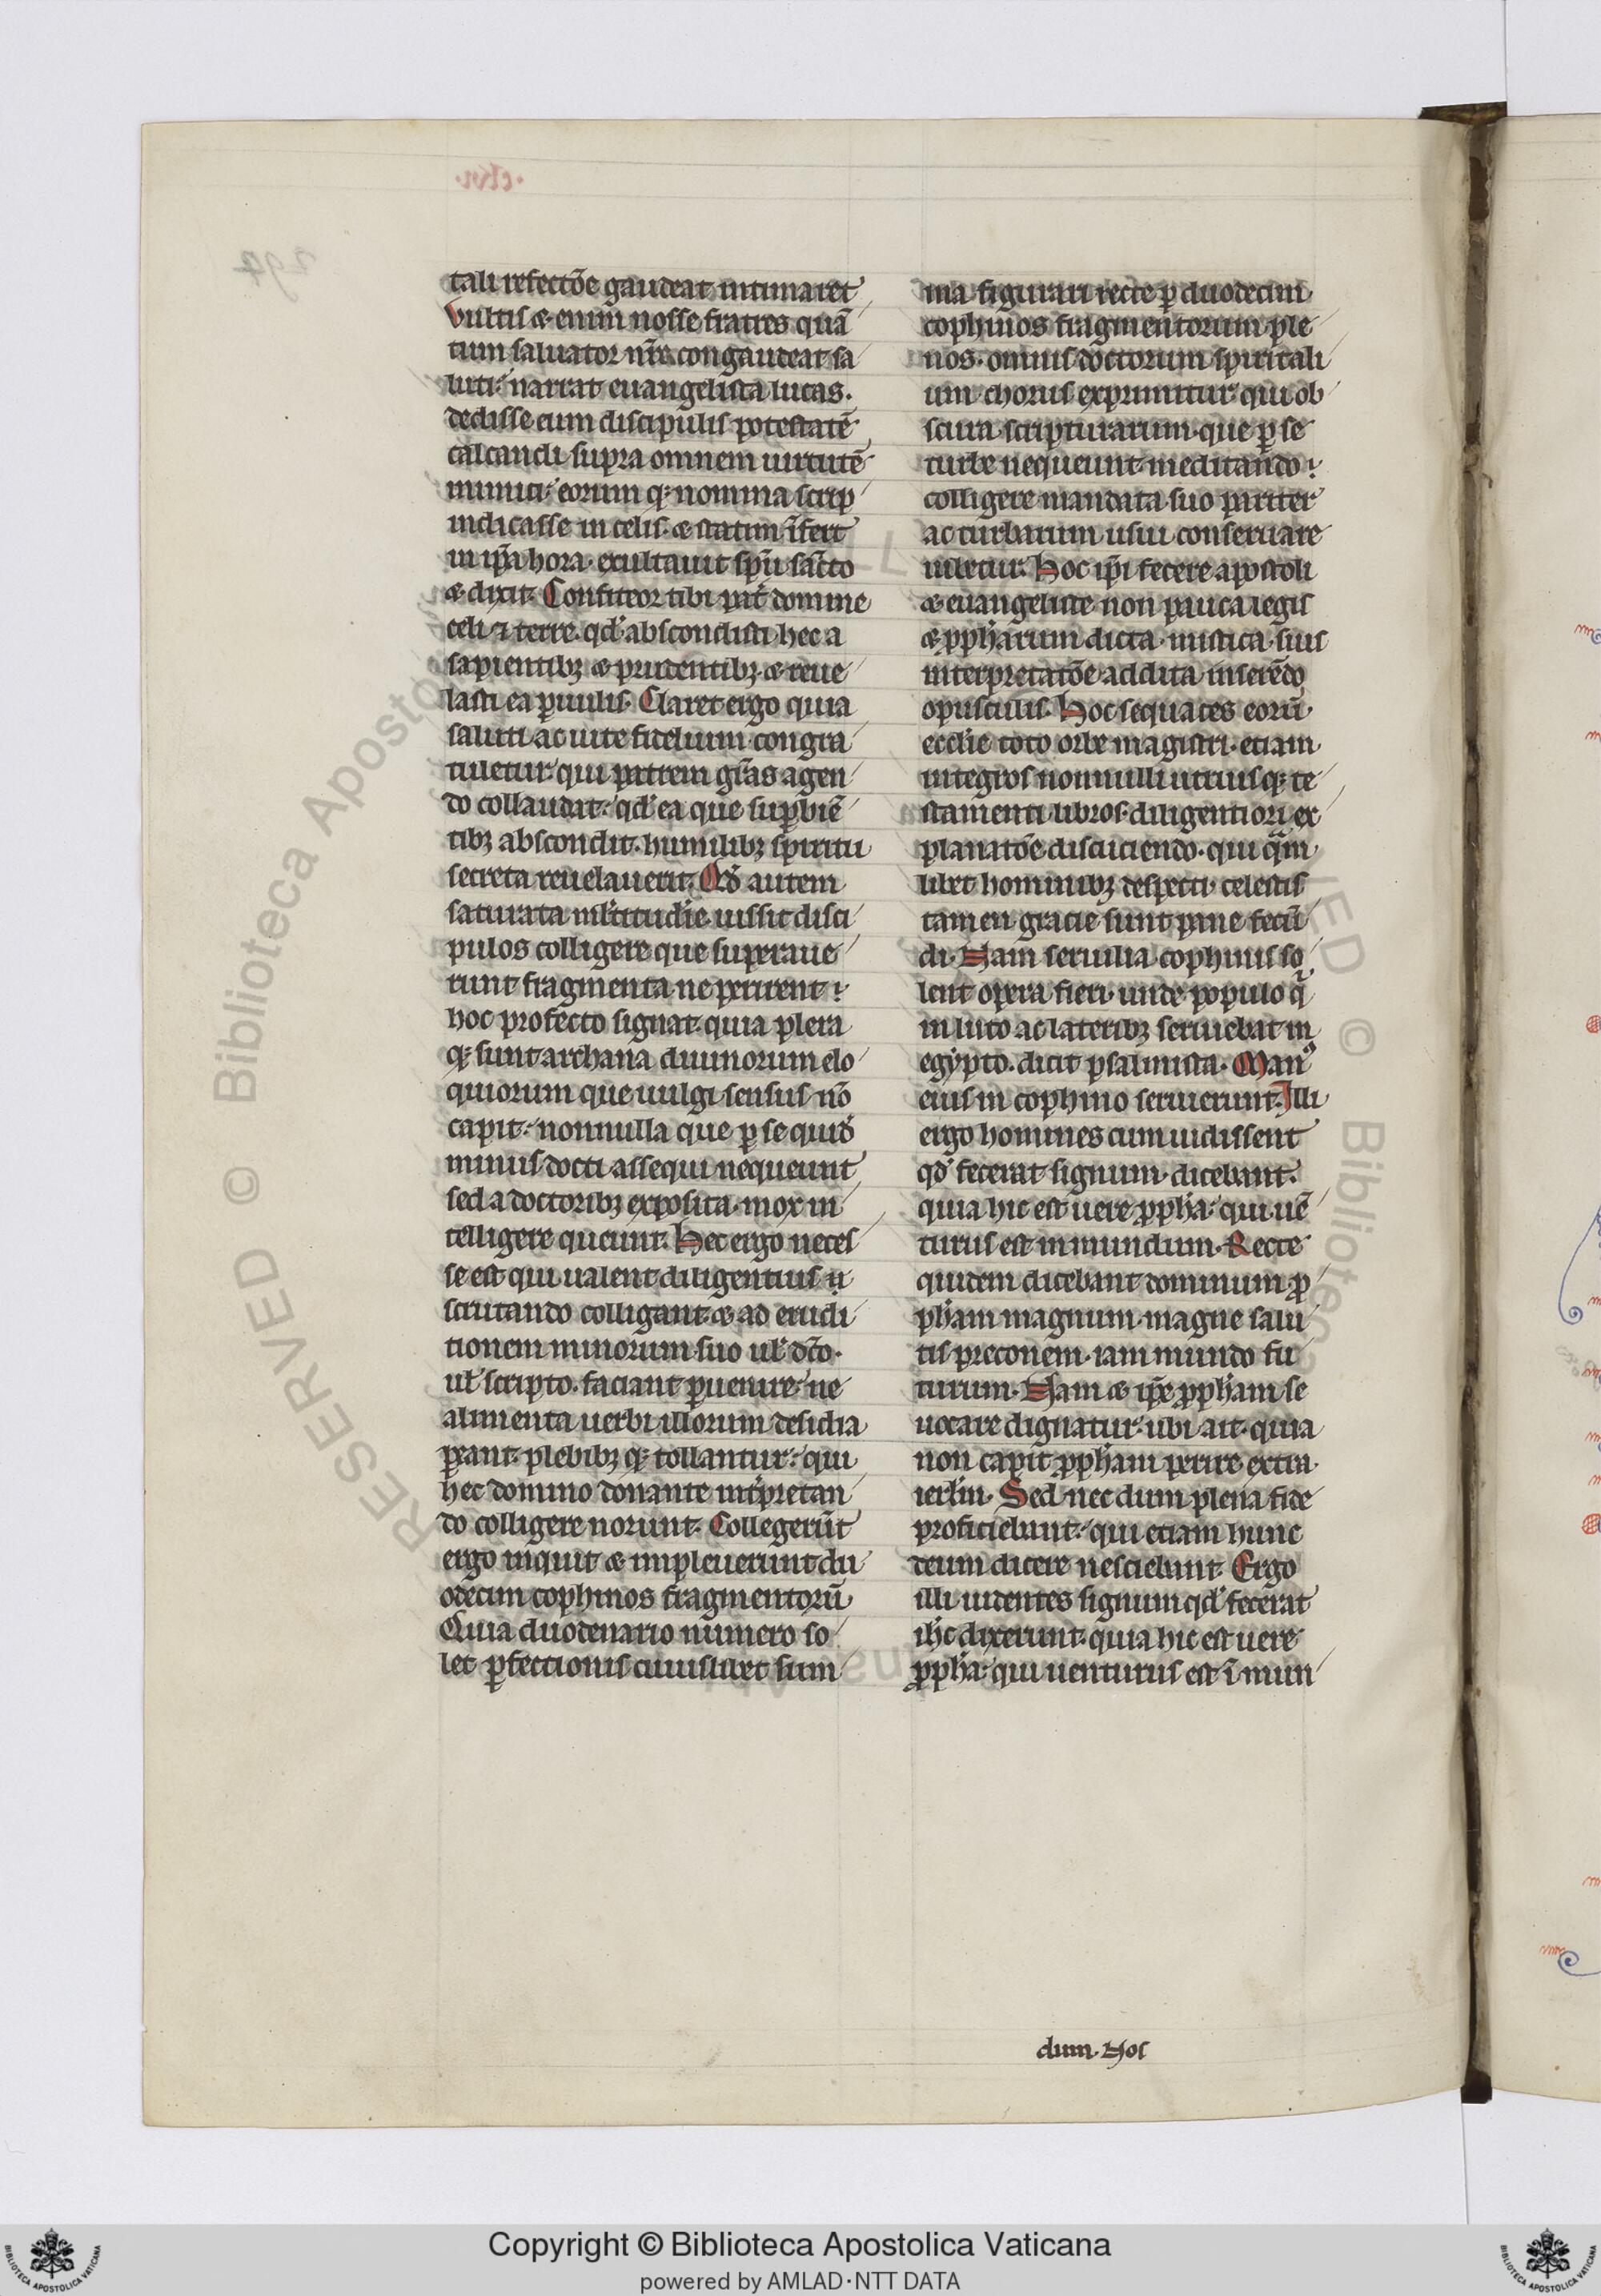 tali refectōe gaudeat intimaret
Vultis & enim nosse fratres quā
tum saluator nr̄ congaudeat sa
luti. narrat euangelista lucas.
dedisse eum discipulis potestatē
calcandi supra omnem uirtutē
inimici. eorum q; nomina scrip
indicasse in celis. & statim īfert
in ip̄a hora. exultauit sp̄u sāc̄to
& dixit. Confiteor tibi pat̄ domine
celi ⁊ terre. qd' abscondisti hec a
sapientibꝫ & prudentibꝫ. & reue
lasti ea ꝑuulis. Claret ergo quia
saluti ac uite fidelium congra
tuletur. qui patrem gr̄as agen
do collaudat. qd' ea que suꝑbiē
tibꝫ abscondit. humilibꝫ spiritu
secreta reuelauerit. Qd' autem
saturata ml'titudīe iussit disci
pulos colligere que superaue
runt fragmenta ne perirent.
hoc profecto signat. quia plera
q; sunt archana diuinorum elo
quiorum que uulgi sensus nō
capit. nonnulla que ꝑ se quid'
minus docti assequi nequeunt
sed a doctoribꝫ exposita. mox in
telligere queunt. Hec ergo neces
se est qui ualent diligentius
scrutando colligant. & ad erudi
tionem minorum suo ul' dc̄o.
ul' scripto. faciant ꝑuenire. ne
alimenta uerbi illorum desidia
ꝑeant. plebibꝫ q; tollantur. qui
hec domino donante int'pretan
do colligere norunt. Collegerūt
ergo inquit & impleuerunt du
odecim cophinos fragmentorū
Quia duodenario numero so
let ꝑfectionis cuiuslibet sum
ma figurari recte ꝑ duodecim
cophinos fragmentorum ple
nos. omnis doctorum spiritali
um chorus exprimitur. qui ob
scura scripturarum. que ꝑ se
turbe nequeunt. meditando
colligere mandata. suo pariter
ac turbarum usui conseruare
iubetur. Hoc ip̄i fecere apostoli
& euangeliste non pauca legis
& ꝓph'arum dicta mistica suis
interpretatōe addita inserēdo
opusculis. Hoc sequaces eorū.
eccl'ie toto orbe magistri. etiam
integros nonnulli utriusq; te
stamenti libros diligentiori ex
planatōe discutiendo. qui quam
libet hominibꝫ despecti. celestis
tamen gracie sunt pane fecū
di. Nam seruilia cophinis so
lent opera fieri. unde populo q
in luto ac lateribꝫ seruiebat in
egypto. dicit psalmista. Man⁹
eius in cophino seruierunt. Illi
ergo homines cum uidissent
qd' fecerat signum. dicebant.
quia hic est uere ꝓph'a. qui uē
turus est in mundum. Recte
quidem dicebant dominum ꝓ
ph'am magnum. magne salu
tis preconem. iam mundo fu
turum. Nam & ip̄e ꝓph'am se
uocare dignatur. ubi ait. quia
non capit ꝓph'am perire extra
ierl'm. Sed nec dum plena fide
proficiebant. qui etiam hunc
deum dicere nesciebant. Ergo
illi uidentes signum qd' fecerat
ih̄c dixerunt. quia hic est uere
ꝓph'a. qui uenturus est ī mun
dum. Hos
RESERVED © Biblioteca Aposto
Copyright © Biblioteca Apostolica Vaticana
powered by AMLAD·NTT DATA
BIBLIOTECA APOSTOLICA VATICANA
BIBLIOTECA APOSTOLICA VATICANA